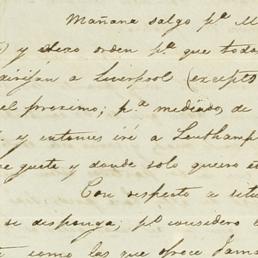 Mañana salgo pª M
) y dexo orden pª que toda
dirijan a Liverpool (except
el proximo; p.ª mediados de
y entonces iré a Southamp
e guste y donde solo quiero
Con respecto a
se disponga; pº considero
como las que ofrece Jama